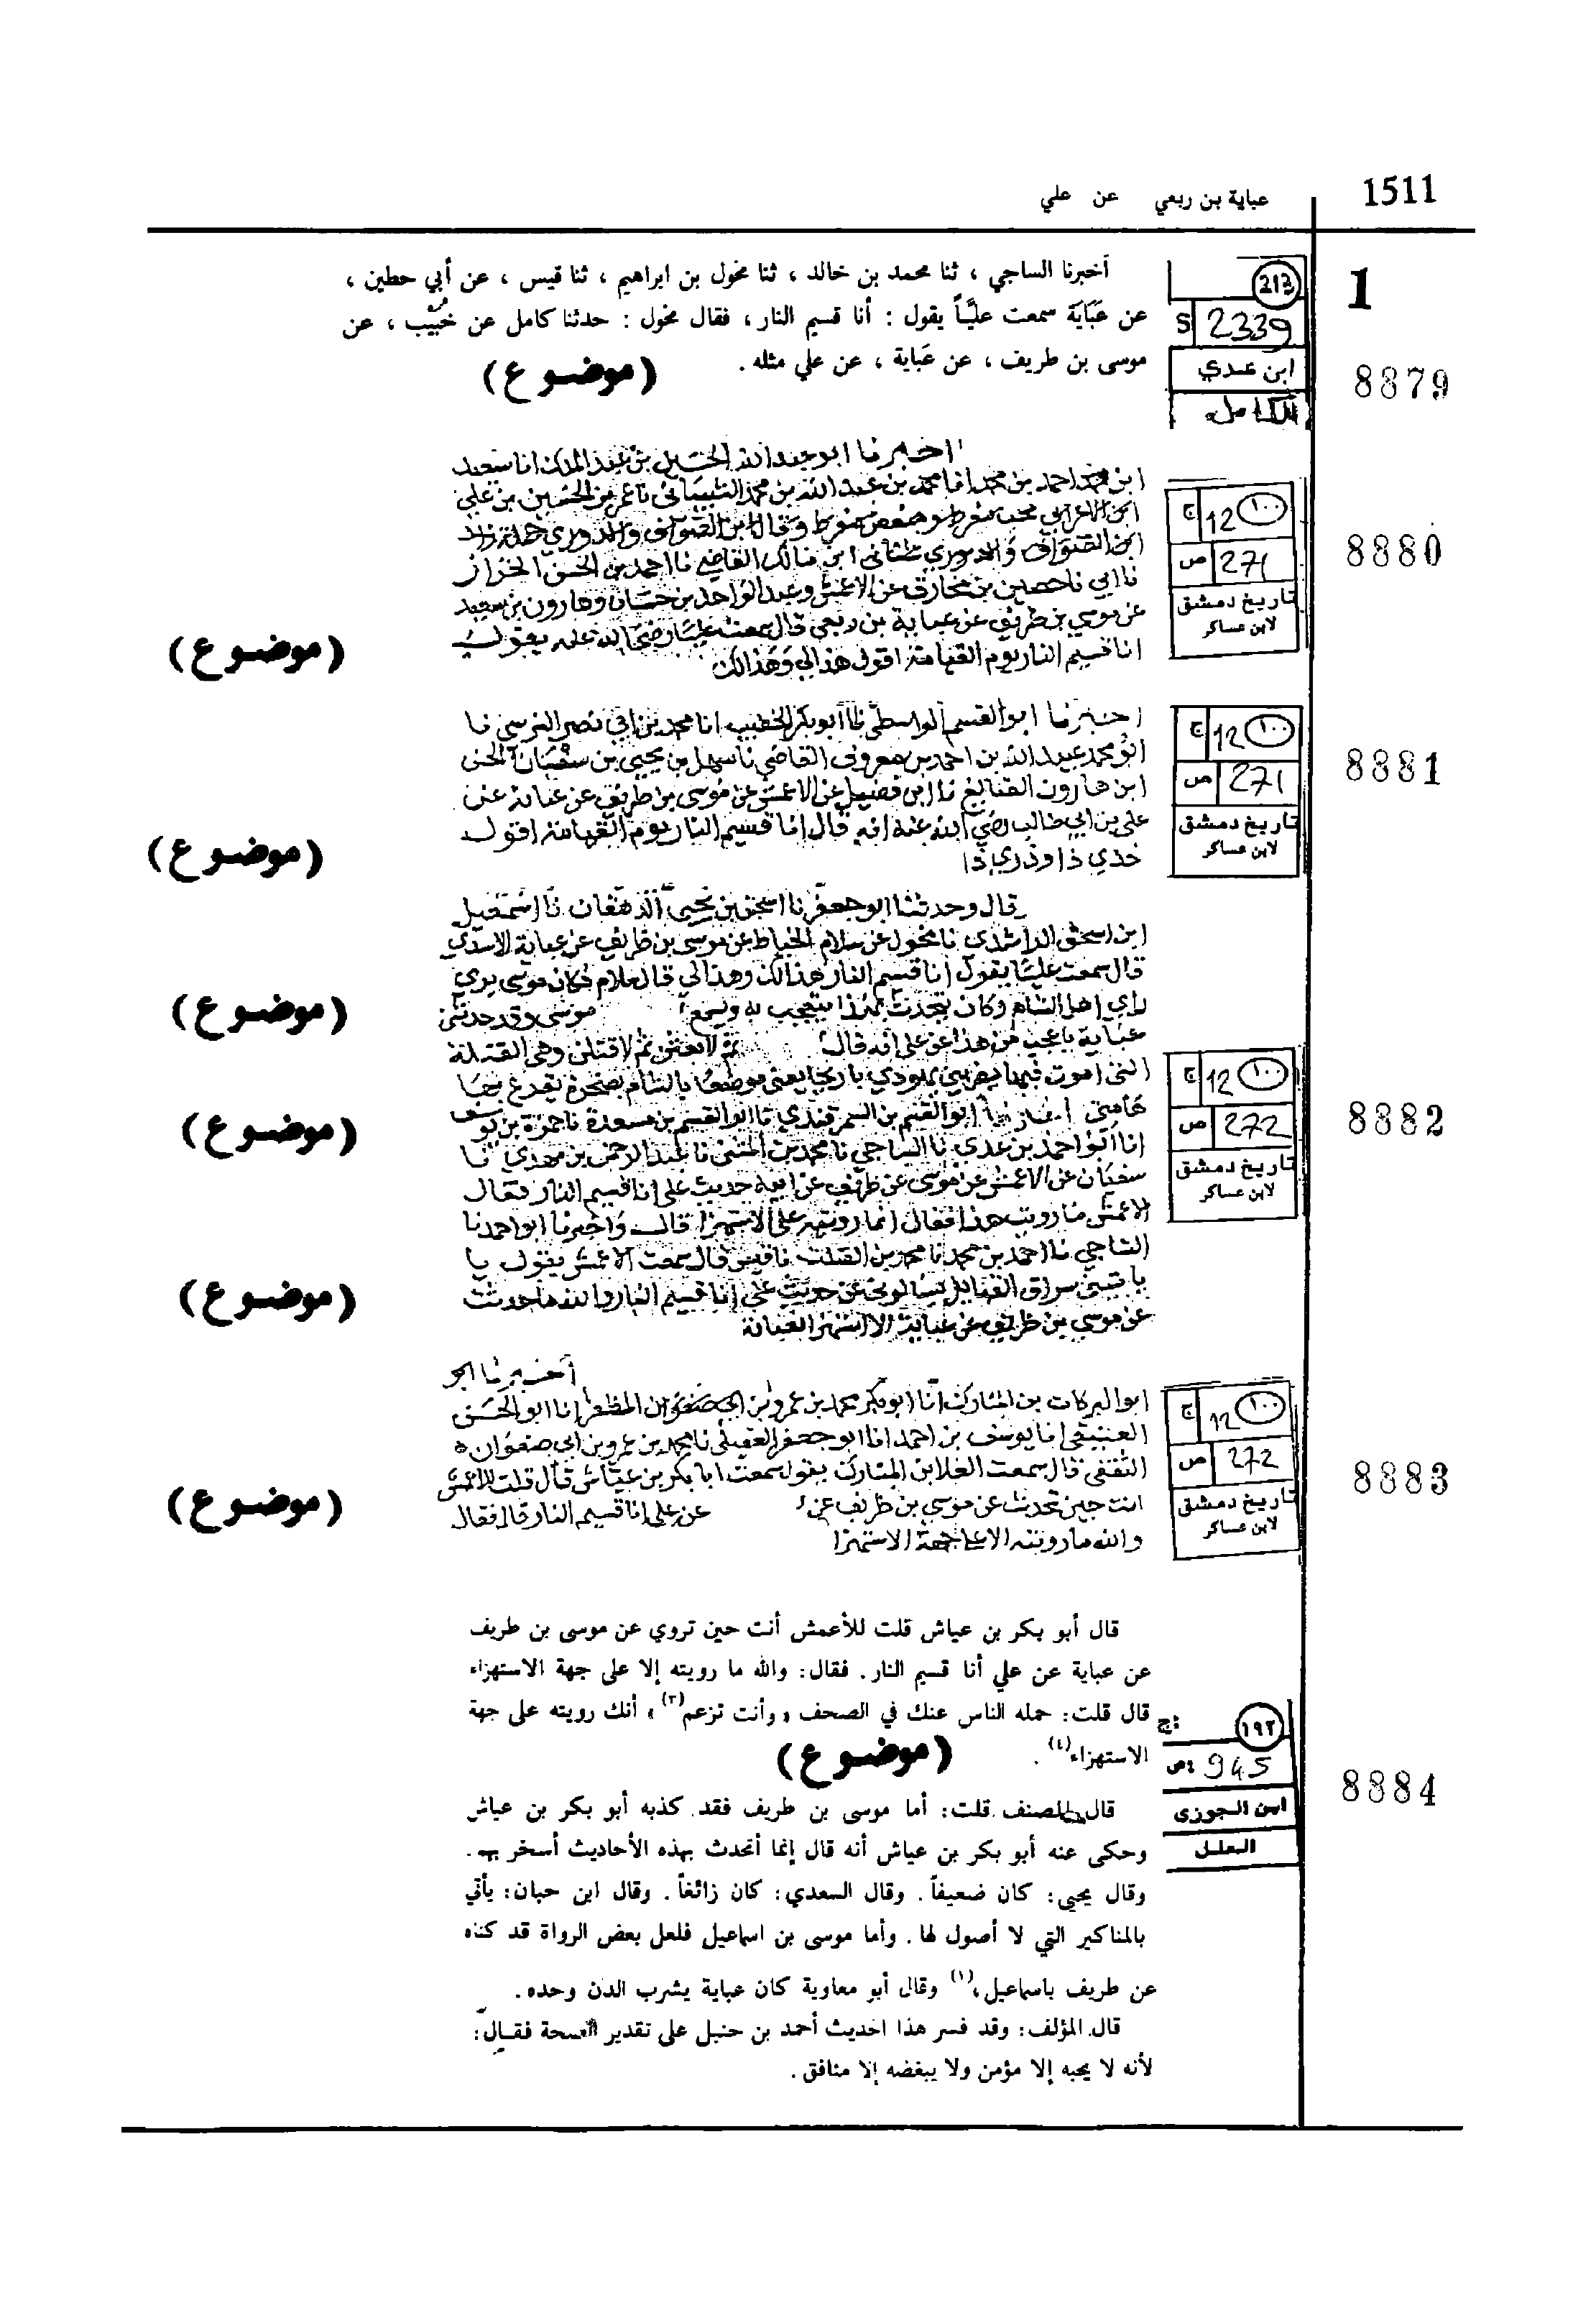 1511
عباية بن ربعي عن علي
1
أخبرنا الساجي ، ثنا محمد بن خالد ، ثنا مخول بن ابراهيم ، ثنا قيس ، عن أبي حطين ،
عن عَبَايَة سمعت عليَّاً يقول : أنا قسيم النار ، فقال مخول : حدثنا كامل عن خبيب ، عن
موسى بن طريف ، عن عَباية ، عن علي مثله .
(موضوع)
213
S 2339
ابن عدي
الكامل
8879
اخبرنا ابو عبد الله الحسين بن عبد الملك انا سعيد
ابن محمد احمد بن محمد انا محمد بن عبد الله بن محمد الشيباني نا عمر بن الحسين بن علي
ابن الصواف والدوري حدثني ابن مالك القاضي نا احمد بن الحسن الخزاز
نا ابي نا حصين بن مخارق عن الاعمش وعبد الواحد بن حسان وهارون بن سعيد
عن موسى بن طريف عن عباية بن ربعي قال سمعت عليا رضي الله عنه يقول
انا قسيم النار يوم القيامة اقول هذا لي وهذا لك
(موضوع)
١٠٠ 12 ج
271 ص
تاريخ دمشق
لابن عساكر
8880
اخبرنا ابو القسم الواسطي نا أبو بكر الخطيب انا محمد بن ابي نصر النرسي نا
ابو محمد عبيد الله بن احمد بن معروف القاضي نا سهل بن يحيى بن سفيان الحن
ابن هارون الصايغ نا ابن فضيل عن الاعمش عن موسى بن طريف عن عباية عن
علي بن ابي طالب رضي الله عنه انه قال انا قسيم النار يوم القيامة اقول
خذي ذا وذري ذا
(موضوع)
١٠٠ 12 ج
271 ص
تاريخ دمشق
لابن عساكر
8881
قال وحدثنا ابو جعفر نا اسحق بن يحيى الدهقان نا اسمعيل
ابن اسحق الراشدي نا مخول عن سلام الخياط عن موسى بن طريف عن عباية الاسدي
قال سمعت عليا يقول انا قسيم النار هذا لك وهذا لي قال سلام فكان موسى يري
راي اهل الشام وكان يتحدث بهذا يتعجب به ويسمع موسى وقد حدثني
عباية باعجب من هذا عن علي انه قال ثم لابعثن ثم لاقتلن وهي القتلة
(موضوع)
انا ابو احمد بن عدي نا الساجي نا محمد بن المثنى نا عبد الرحمن بن مهدي نا
سفيان عن الاعمش عن موسى عن طريف عن ابيه حديث علي انا قسيم النار فقال
الاعمش ما رويت هذا فقال انما رويته على الاستهزا قال واخبرنا ابو احمد نا
الساجي نا احمد بن محمد نا محمد بن الصلت نا قيس قال سمعت الاعمش يقول يا
عن موسى بن طريف عن عباية الا استهزا لعباية
(موضوع)
(موضوع)
١٠٠ 12 ج
272 ص
تاريخ دمشق
لابن عساكر
8882
أخبرنا ابو
ابو البركات بن المبارك انا ابو بكر محمد بن المظفر انا ابو الحسن
العتيقي انا يوسف بن احمد انا ابو جعفر العقيلي نا محمد بن عمرو بن ابي صفوان
الثقفي قال سمعت العلا بن المبارك يقول سمعت ابا بكر بن عياش قال قلت للاعمش
انت حين تحدث عن موسى بن طريف عن عن علي انا قسيم النار قال فقال
والله ما رويته الا على جهة الاستهزا
(موضوع)
١٠٠ 12 ج
272 ص
تاريخ دمشق
لابن عساكر
8883
قال أبو بكر بن عياش قلت للأعمش أنت حين تروي عن موسى بن طريف
عن عباية عن علي أنا قسيم النار. فقال: والله ما رويته إلا على جهة الاستهزاء
قال قلت: حمله الناس عنك في الصحف « وأنت تزعم(٣) » أنك رويته على جهة
الاستهزاء(٤) .
(موضوع)
١٩٢ ج:
945 ص:
ابن الجوزي
العلل
8884
قال المصنف قلت: أما موسى بن طريف فقد كذبه أبو بكر بن عياش
وحكى عنه أبو بكر بن عياش أنه قال إنما أتحدث بهذه الأحاديث أسخر بهم.
وقال يحيى: كان ضعيفاً. وقال السعدي: كان زائغاً. وقال ابن حبان: يأتي
بالمناكير التي لا أصول لها. وأما موسى بن اسماعيل فلعل بعض الرواة قد كناه
عن طريف باسماعيل،(١) وقال أبو معاوية كان عباية يشرب الدن وحده.
قال المؤلف: وقد فسر هذا الحديث أحمد بن حنبل على تقدير الصحة فقال:
لأنه لا يحبه إلا مؤمن ولا يبغضه إلا منافق.